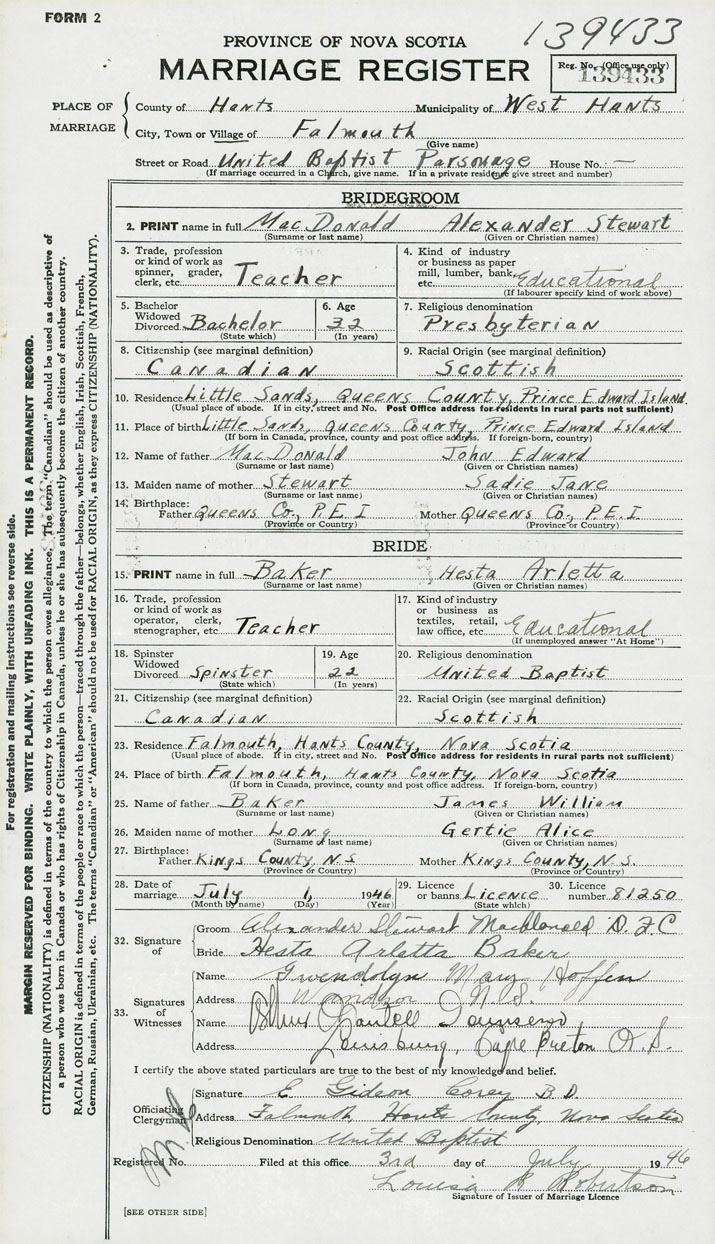 FORM 2
139433
PROVINCE OF NOVA SCOTIA
MARRIAGE REGISTER
Reg. No. (Office use only)
139433
PLACE OF MARRIAGE
County of Hants Municipality of West Hants
City, Town or Village of Falmouth
(Give name)
Street or Road United Baptist Parsonage House No. —
(If marriage occurred in a Church, give name. If in a private residence give street and number)
BRIDEGROOM
2. PRINT name in full MacDonald Alexander Stewart
(Surname or last name) (Given or Christian names)
3. Trade, profession or kind of work as spinner, grader, clerk, etc. Teacher
4. Kind of industry or business as paper mill, lumber, bank, etc. Educational
(If labourer specify kind of work above)
5. Bachelor Widowed Divorced Bachelor
(State which)
6. Age 32
(In years)
7. Religious denomination
Presbyterian
8. Citizenship (see marginal definition)
Canadian
9. Racial Origin (see marginal definition)
Scottish
10. Residence Little Sands, Queens County, Prince Edward Island.
(Usual place of abode. If in city, street and No. Post Office address for residents in rural parts not sufficient)
11. Place of birth Little Sands, Queens County, Prince Edward Island
(If born in Canada, province, county and post office address. If foreign-born, country)
12. Name of father MacDonald John Edward
(Surname or last name) (Given or Christian names)
13. Maiden name of mother Stewart Sadie Jane
(Surname or last name) (Given or Christian names)
14. Birthplace:
Father Queens Co., P.E.I Mother Queens Co., P.E.I
(Province or Country) (Province or Country)
BRIDE
15. PRINT name in full Baker Hesta Arletta
(Surname or last name) (Given or Christian names)
16. Trade, profession or kind of work as operator, clerk, stenographer, etc Teacher
17. Kind of industry or business as textiles, retail, law office, etc. Educational
(If unemployed answer "At Home")
18. Spinster Widowed Divorced Spinster
(State which)
19. Age 22
(In years)
20. Religious denomination
United Baptist
21. Citizenship (see marginal definition)
Canadian
22. Racial Origin (see marginal definition)
Scottish
23. Residence Falmouth, Hants County, Nova Scotia
(Usual place of abode. If in city, street and No. Post Office address for residents in rural parts not sufficient)
24. Place of birth Falmouth, Hants County, Nova Scotia
(If born in Canada, province, county and post office address. If foreign-born, country)
25. Name of father Baker James William
(Surname or last name) (Given or Christian names)
26. Maiden name of mother Long Gertie Alice
(Surname or last name) (Given or Christian names)
27. Birthplace:
Father Kings County, N.S Mother Kings County, N.S.
(Province or Country) (Province or Country)
28. Date of marriage July 1, 1946
(Month by name) (Day) (Year)
29. Licence or banns Licence
(State which)
30. Licence number 81250
32. Signature of
Groom Alexander Stewart Macdonald D.F.C
Bride Hesta Arletta Baker
33. Signatures of Witnesses
Name Gwendolyn Mary Hoffen
Address Windsor N.S.
Name Townsend
Address Louisburg, Cape Breton N.S.
I certify the above stated particulars are true to the best of my knowledge and belief.
Officiating Clergyman
Signature E Gideon Corey B.D.
Address Falmouth, Hants County, Nova Scotia
Religious Denomination United Baptist
Registered No. Filed at this office 3rd day of July 1946
Louisa R Robertson
Signature of Issuer of Marriage Licence
[SEE OTHER SIDE]
For registration and mailing instructions see reverse side.
MARGIN RESERVED FOR BINDING. WRITE PLAINLY, WITH UNFADING INK. THIS IS A PERMANENT RECORD.
CITIZENSHIP (NATIONALITY) is defined in terms of the country to which the person owes allegiance. The term "Canadian" should be used as descriptive of
a person who was born in Canada or who has rights of Citizenship in Canada, unless he or she has subsequently become the citizen of another country.
RACIAL ORIGIN is defined in terms of the people or race to which the person—traced through the father—belongs, whether English, Irish, Scottish, French,
German, Russian, Ukrainian, etc. The terms "Canadian" or "American" should not be used for RACIAL ORIGIN, as they express CITIZENSHIP (NATIONALITY).